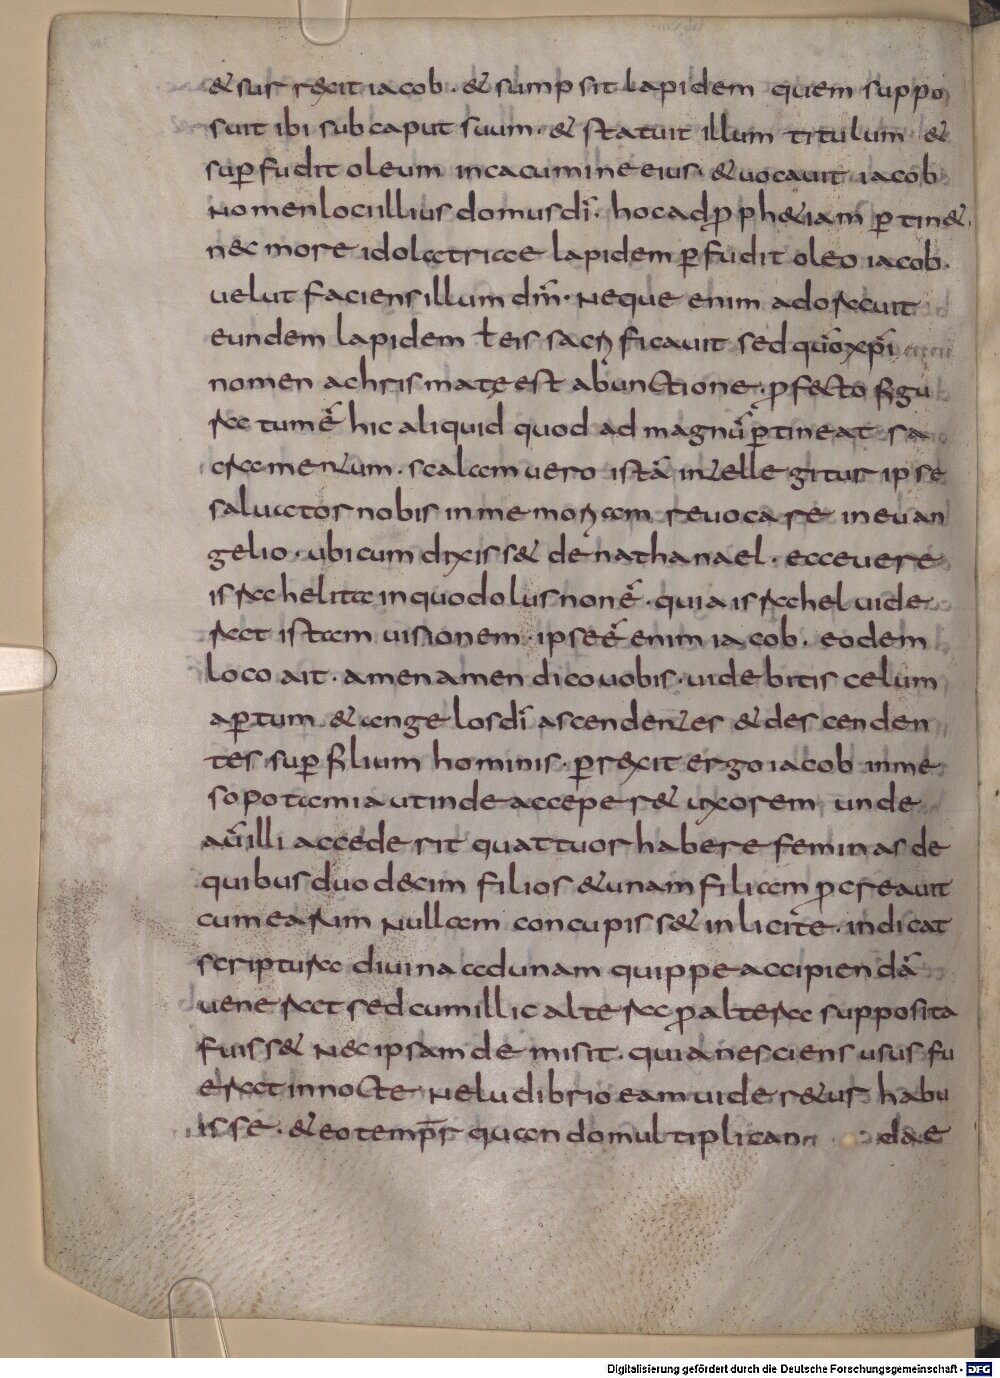 & surrexit iacob · & sumpsit lapidem quem suppo
suit ibi sub caput suum · & statuit illum titulum &
sup̄fudit oleum in cacumine eius · & uocauit iacob
nomen loci illius domus dī · hoc ad ꝓph&iam p̄tin& ·
nec more idolatriae lapidem p̄fudit oleo iacob ·
uelut faciens illum dm̄ · neque enim adorauit
eundem lapidem ł eis sacrificauit sed qūo xp̄i
nomen a chrismate est ab unctione · ꝓfecto figu
ratum ē hic aliquid quod ad magnū p̄tineat sa
cramentum · scalam uero istā intellegitur ipse
saluator nobis in memoriam reuocare in euan
gelio · ubi cum dixiss& de nathanael · ecce uere
israhelita in quo dolus non ē · quia israhel uide
rat istam uisionem · ipse ē enim iacob · eodem
loco ait · amen amen dico uobis · uidebitis celum
ap̄tum & angelos dī ascendentes & descenden
tes sup̄ filium hominis · p̄rexit ergo iacob in me
sopotamia ut inde acceper& uxorem unde
aū illi accederit quattuor habere feminas de
quibus duodecim filios & unam filiam ꝓcreauit
cum earum nullam concupiss& inlicite · indicat
scriptura diuina ad unam quippe accipiendā
uenerat sed cum illi caltera ꝓ altera supposita
fuiss& nec ipsam demisit · quia nesciens usus fu
erat in nocte ne ludibrio eam uider&ur habu
isse · & eo temp̄r quando multiplican dae
Digitalisierung gefördert durch die Deutsche Forschungsgemeinschaft - DFG